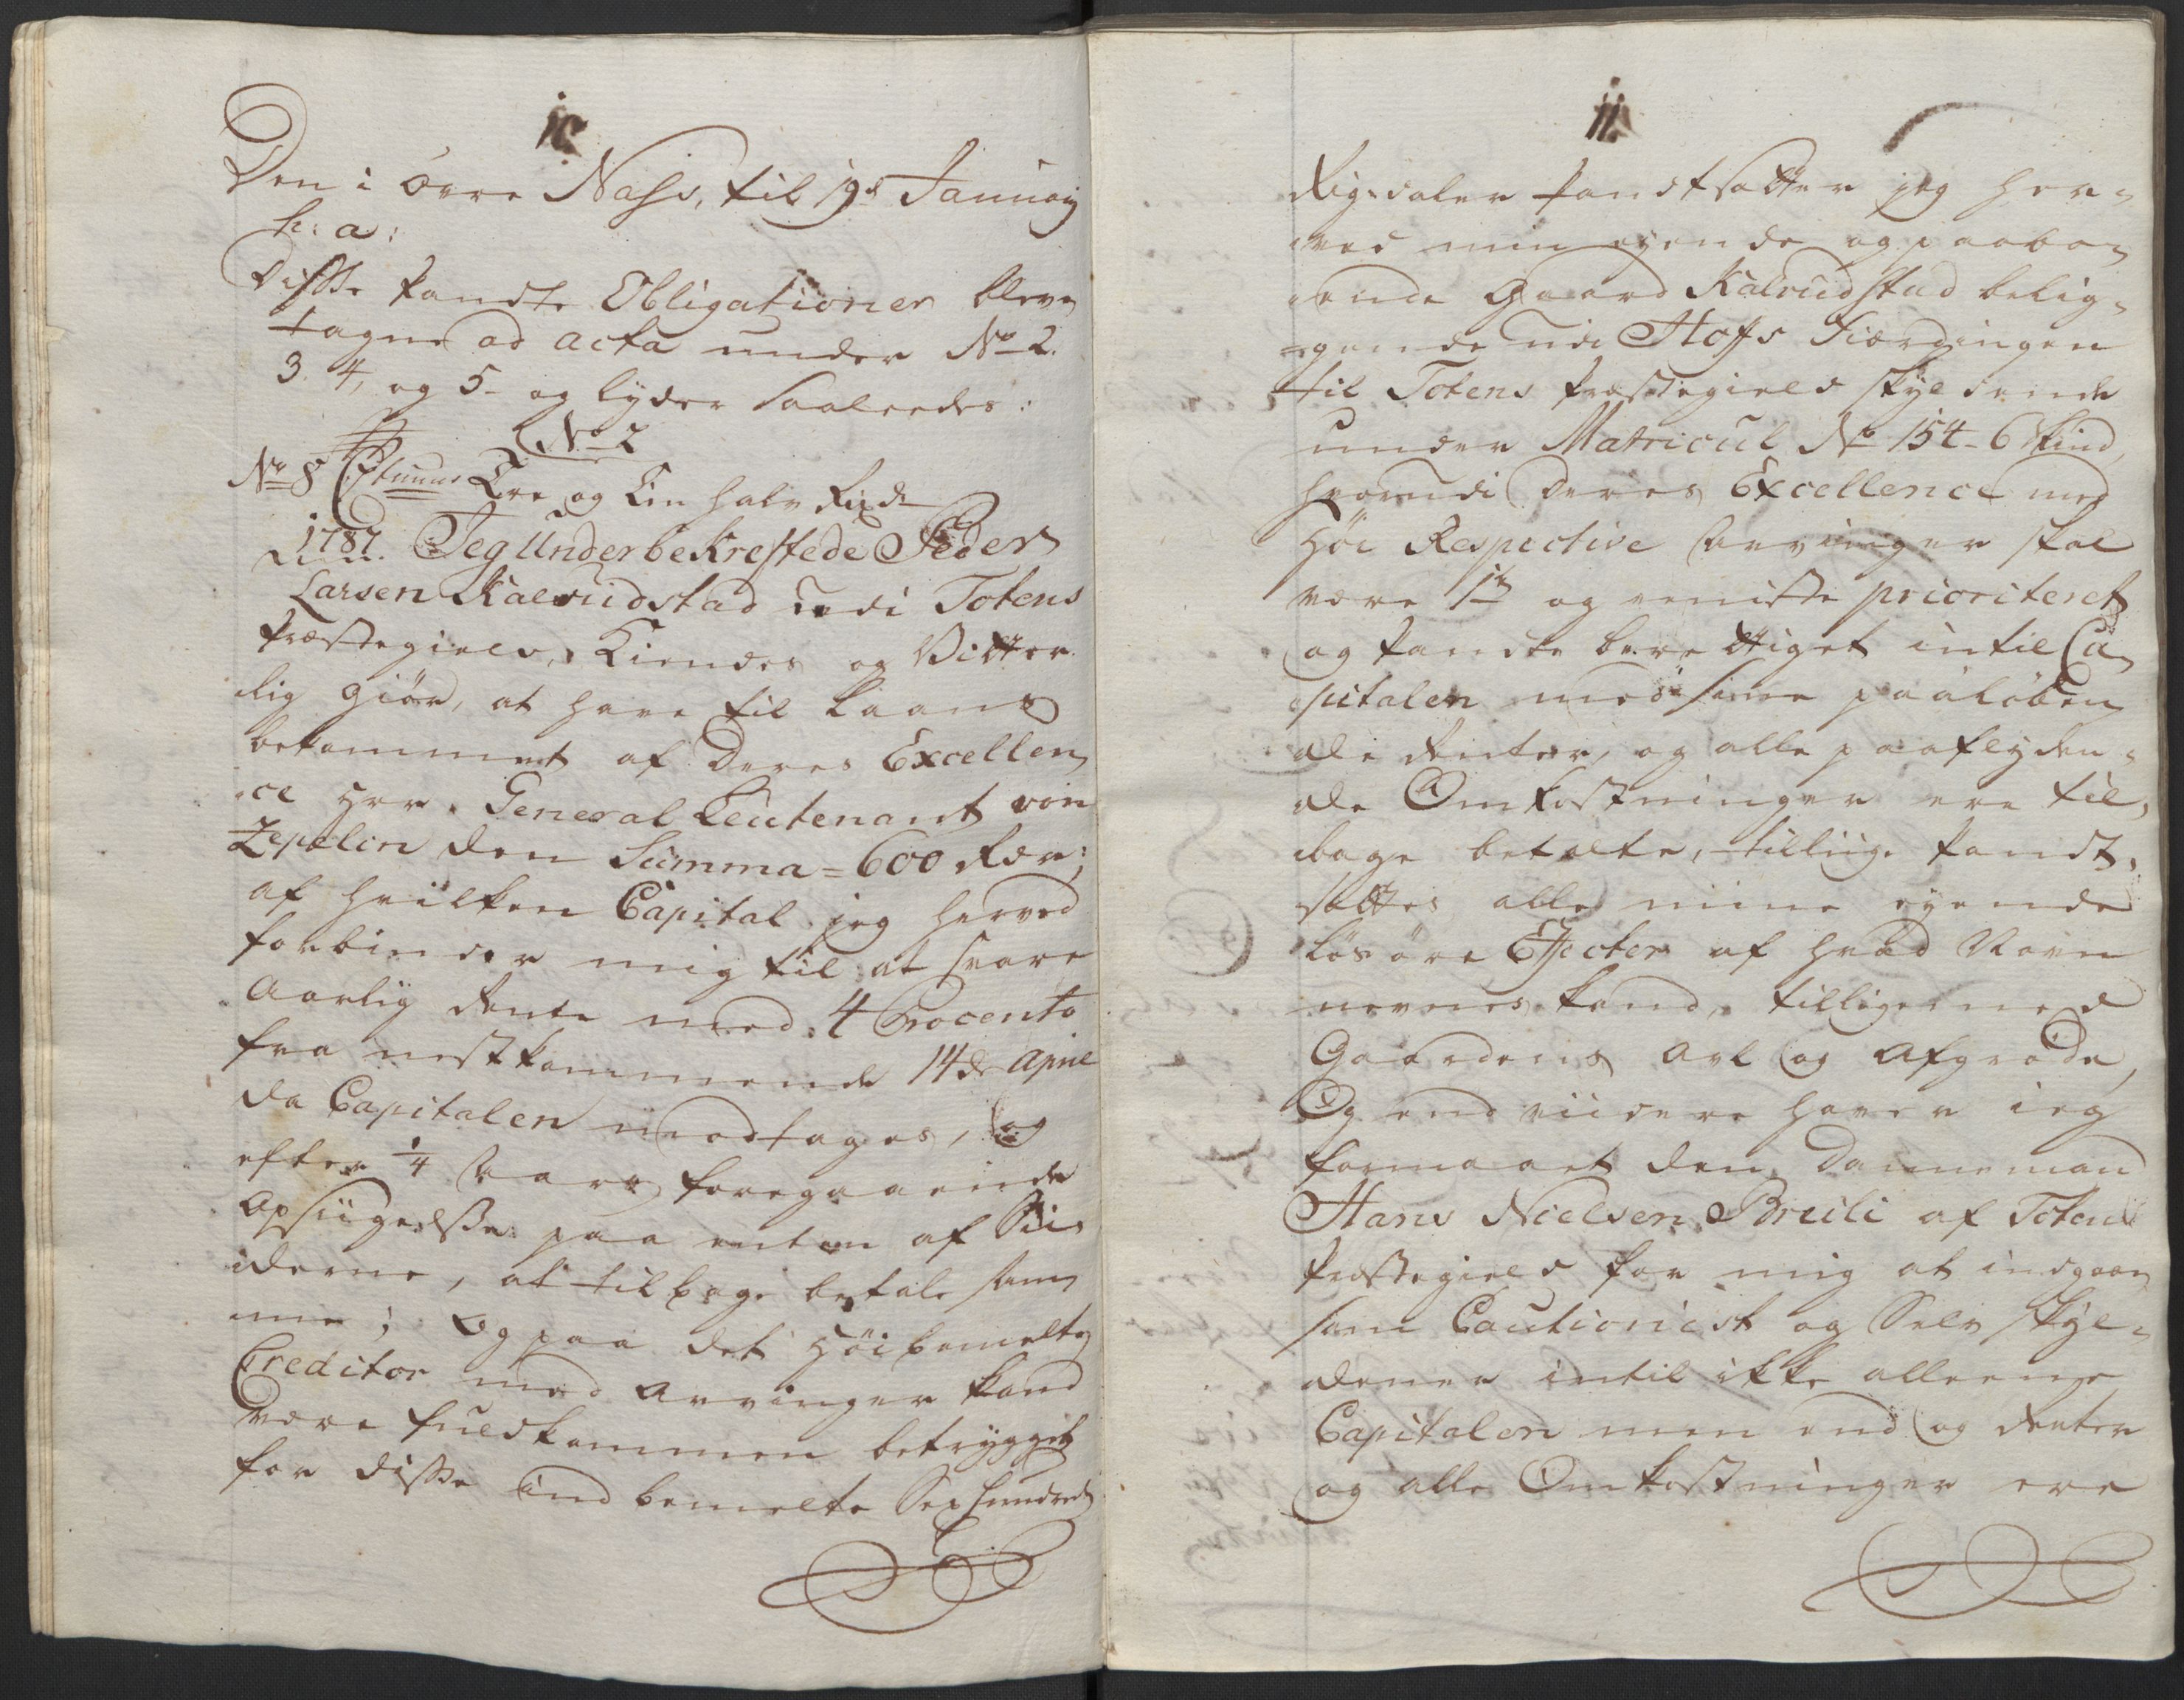 10
Den i övre Næss, til 19de Januarij
h: a:
Disse Pandte Obligationer bleve
tagne ad acta under No 2.
3. 4, og 5- og lyder saaleedes:
No 2
No 8 Toe og Een halv Rixdr
1787. Jeg Underbekreftede Peder
Larsen Kalrudstad udi Totens
Præstegield, Kiendes og Vitter
lig Giör, at have til Laans
bekommet af Deres Excellen
ce Herr General Leutenant von
Zepelin den Summa = 600 Rdr;
af hvilken Capital jeg herved
forbinder mig til at svare
Aarlig Rente med 4 Procento
fra nestkommende 14de April
da Capitalen modtages, og
efter 1/4 Aars foregaaende
Opsiigelse paa enten af Sii
derne, at tilbage betale sam
me; Og paa det Höibemelte
Creditor med Arvinger kand
være fuldkommen betrygget
for disse indbemelte Sex hundrede
11
Rigsdaler Pandtsætter jeg her
ved min eyende og paaboe
ende Gaard Kalrudstad belig
gende udi Hoffs Fierdingen
til Totens Præstegield skyldende
under Matricul No 154 - 6 Skind,
hvorudi Deres Excellence med
Höi Respective Arvinger skal
være 1te og eeniste prioriteret
og Pandte berettiget intil Ca
pitalen med sine paalöben
de Renter, og alle paaflyden
de Omkostninger ere til
bage betalte, tilliige Pandt
sættes alle mine eyende
Lösöre Effecter af hvad Navn
nevnes kand, tilligemed
Gaardens Avl og Afgröde,
Og end viidere haver ieg
formaaet den Dannemand
Hans Nielsen Bruli af Totens
Præstegield for mig at indgaae
som Cautionist og Selv skyl
dener intil ikke alleene
Capitalen men end og Renter
og alle Omkostninger ere